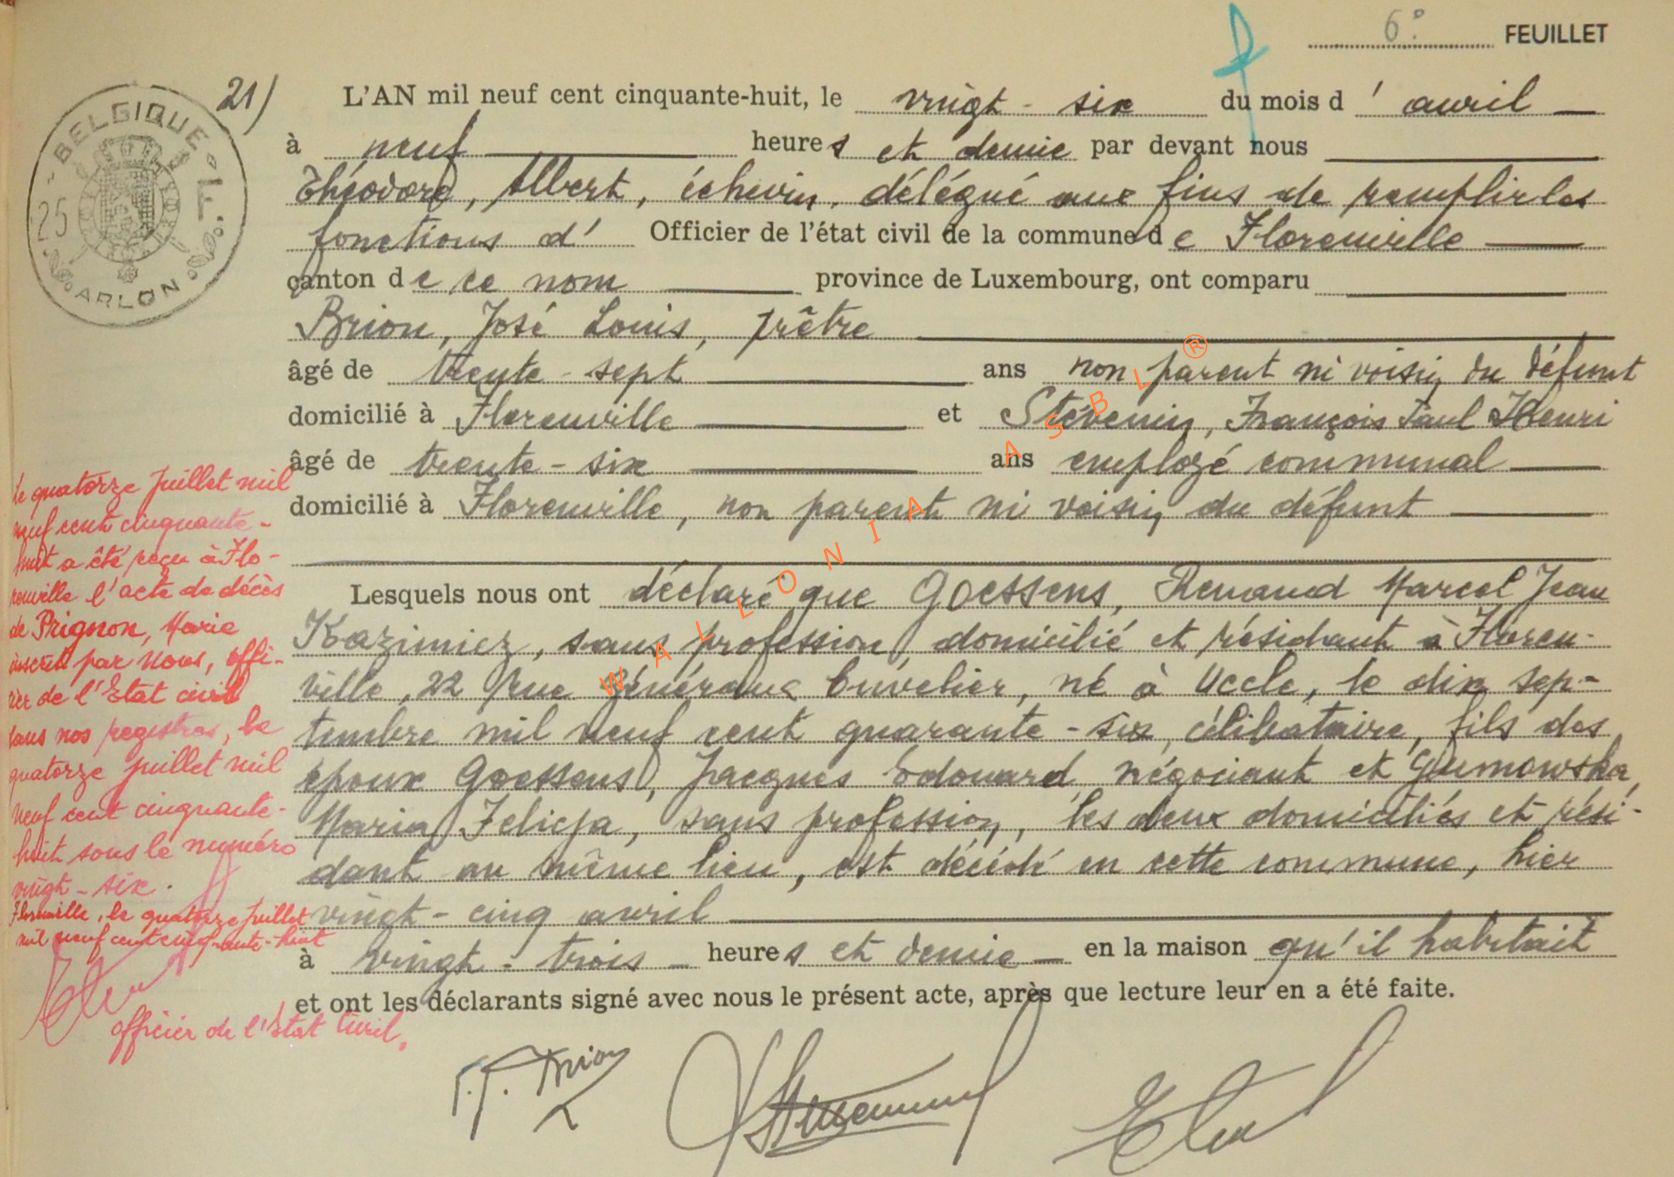 6° FEUILLET
21)
BELGIQUE
25 F.
ARLON
L'AN mil neuf cent cinquante-huit, le vingt-six du mois d'avril
à neuf heures et demie par devant nous
Théodore, Albert, échevin, délégué aux fins de remplir les
fonctions d' Officier de l'état civil de la commune de Florenville
canton de ce nom province de Luxembourg, ont comparu
Brion, José Louis, prêtre
âgé de trente-sept ans non parent ni voisin du défunt
domicilié à Florenville et Stévenin, François Paul Henri
âgé de trente-six ans employé communal
domicilié à Florenville, non parent ni voisin du défunt
Lesquels nous ont déclaré que Goessens, Renaud Marcel Jean
Kazimiez, sans profession, domicilié et résidant à Floren-
ville, 22 Rue Généraux Cuvelier, né à Uccle, le dix sep-
tembre mil neuf cent quarante-six, célibataire, fils des
époux Goessens, Jacques Edouard, négociant et Gumowska,
Maria Felicja, sans profession, les deux domiciliés et rési-
dant au même lieu, est décédé en cette commune, hier
vingt-cinq avril
à vingt-trois heures et demie en la maison qu'il habitait
et ont les déclarants signé avec nous le présent acte, après que lecture leur en a été faite.
Le quatorze juillet mil
neuf cent cinquante-
huit a été reçu à Flo-
renville l'acte de décès
de Prignon, Marie
inscrit par nous, offi-
cier de l'Etat civil
dans nos registres, le
quatorze juillet mil
neuf cent cinquante-
huit sous le numéro
vingt-six.
Florenville, le quatorze juillet
mil neuf cent cinquante-huit
officier de l'Etat Civil.
Brion
WALLONIA ASBL ®